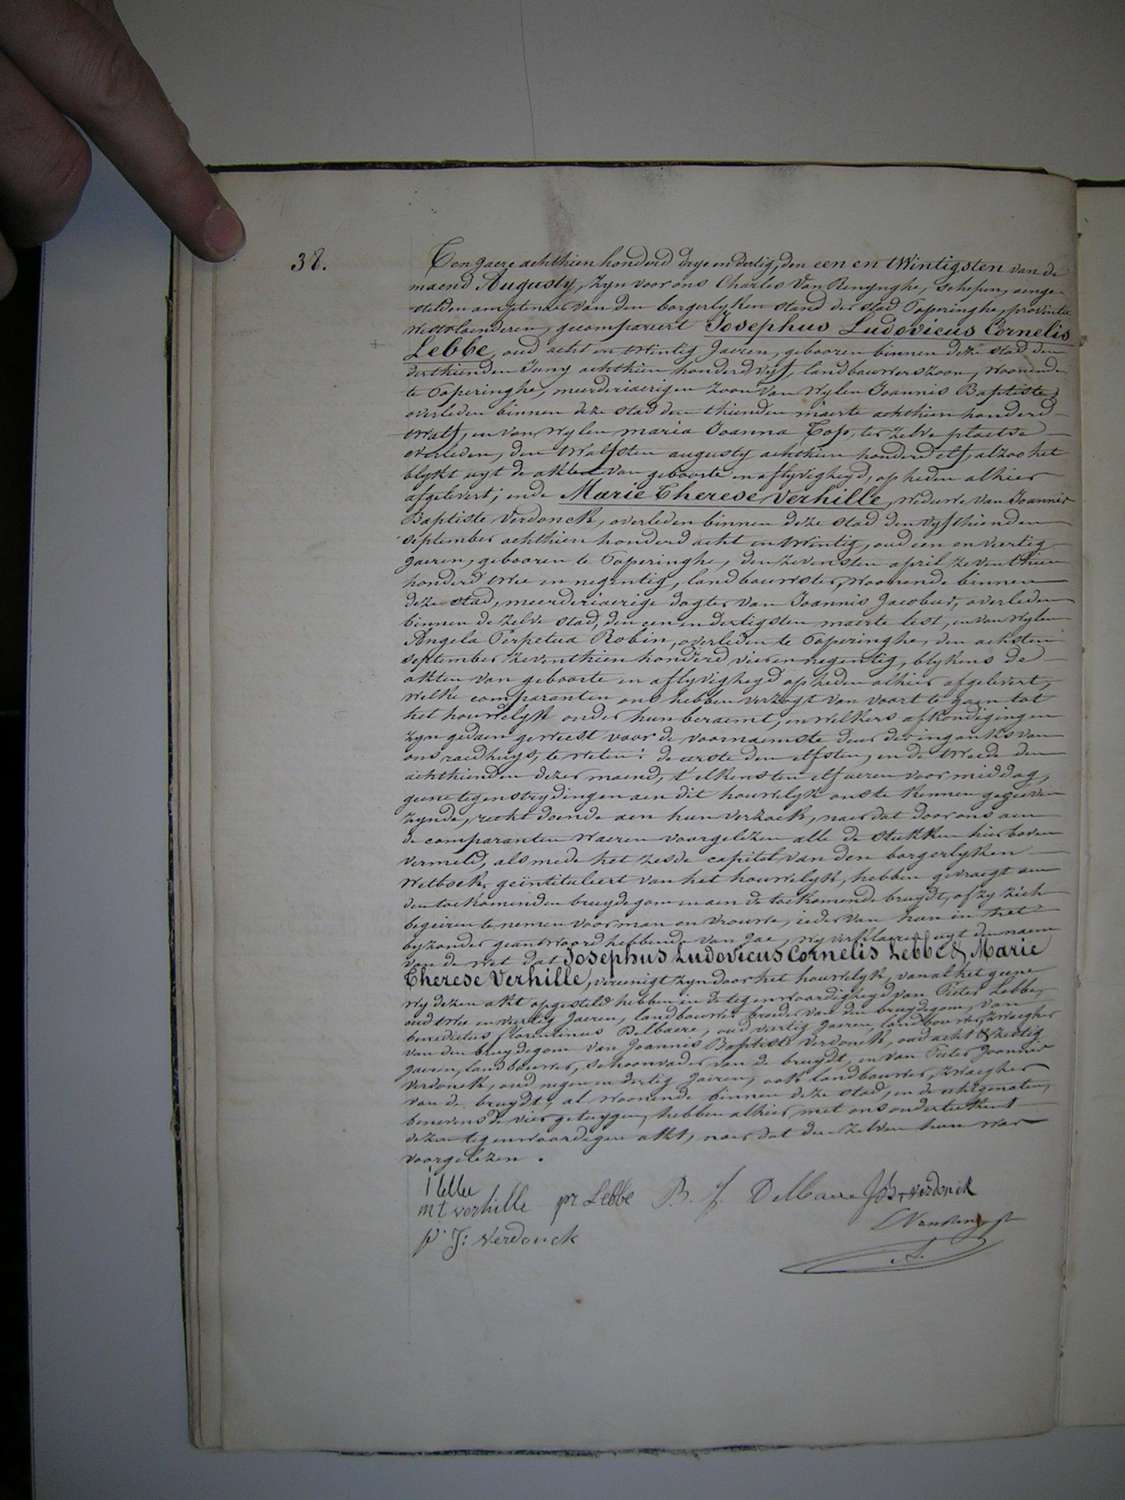 38.
Ten jaere achthien honderd drye en dertig, den een en twintigsten van de
maend Augusty, zyn voor ons Charles Van Renynghe, schepen, aenge-
stelden amptenaer van den borgerlyken stand der stad Poperinghe, provintie
westvlaenderen, gecompareert Josephus Ludovicus Cornelis
Lebbe, oud acht en twintig Jaeren, gebooren binnen deze stad den
derthienden Juny achthien honderd vyf, landbouwerszoon, woonende
te Poperinghe, meerderjaerigen zoon van wylen Joannis Baptiste,
overleden binnen deze stad den thienden maerte achthien honderd
twalf, en van wylen maria Joanna Top, ter zelve plaetse
overleden, den twalfsten augusty achthien honderd elf, alzoo het
blykt uyt de akten van geboorte en aflyvigheyd, op heden alhier
afgelevert; ende Marie Therese Verhille, weduwe van Joannis
Baptiste Verdonck, overleden binnen deze stad den vyfthienden
september achthien honderd acht en twintig, oud een en veertig
jaeren, gebooren te Poperinghe, den zevensten april zeventhien
honderd twee en negentig, landbouwster, woonende binnen
deze stad, meerderjaerige dogter van Joannis Jacobus, overleden
binnen de zelve stad, den een en dertigsten maerte lest, en van wylen
Angela Perpetua Robin, overleden te Poperinghe, den achsten
september zeventhien honderd vier en negentig, blykens de
akten van geboorte en aflyvigheyd op heden alhier afgelevert,
welke comparanten ons hebben verzogt van voort te gaan tot
het houwelyk onder hun beraemt, en welkers afkondigingen
zyn gedaen geweest voor de voornaemste deur der ingank van
ons raedhuys, te weten: de eerste den elfsten, en de tweede den
achthienden dezer maend, t'elkens ten elf ueren voor middag,
geene tegenstrydingen aen dit houwelyk ons te kennen gegeven
zynde, recht doende aen hun verzoek, naer dat door ons aen
de comparanten waeren voorgelezen alle de stukken hierboven
vermeld, als mede het zesde capitel van den borgerlyken
Wetboek, geïntituleert van het houwelyk, hebben gevraegt aen
den toekomenden bruydegom en aen de toekomende bruydt, of zy zich
begeeren te nemen voor man en vrouwe, ieder van hun in het
byzonder geantwoord hebbende van Jae, wy verklaeren uyt den naem
van de wet dat Josephus Ludovicus Cornelis Lebbe & Marie
Therese Verhille, vereenigt zyn door het houwelyk, van al het geene
wy dezen akt opgesteld hebben in de tegenwoordigheyd van Pieter Lebbe,
oud twee en veertig Jaeren, landbouwer broeder van den bruydegom, van
benedictus florentinus Delbaere, oud veertig Jaeren landbouwer, zwaegher
van den bruydegom van Joannis Baptiste Verdonck, oud acht & zestig
jaeren, landbouwer, schoonvader van de bruydt, en van Pieter Joannis
Verdonck, oud negen en dertig Jaeren, ook landbouwer, zwaegher
van de bruydt, al woonende binnen deze stad, en de echtgenoten,
benevens de vier getuygen, hebben alhier met ons onderteekent
dezen tegenwoordigen akt, naer dat den zelven hun was
voorgelezen.
j lebbe
m t verhille pr Lebbe B. f. Delbaere J b verdonck
p. J: Verdonck